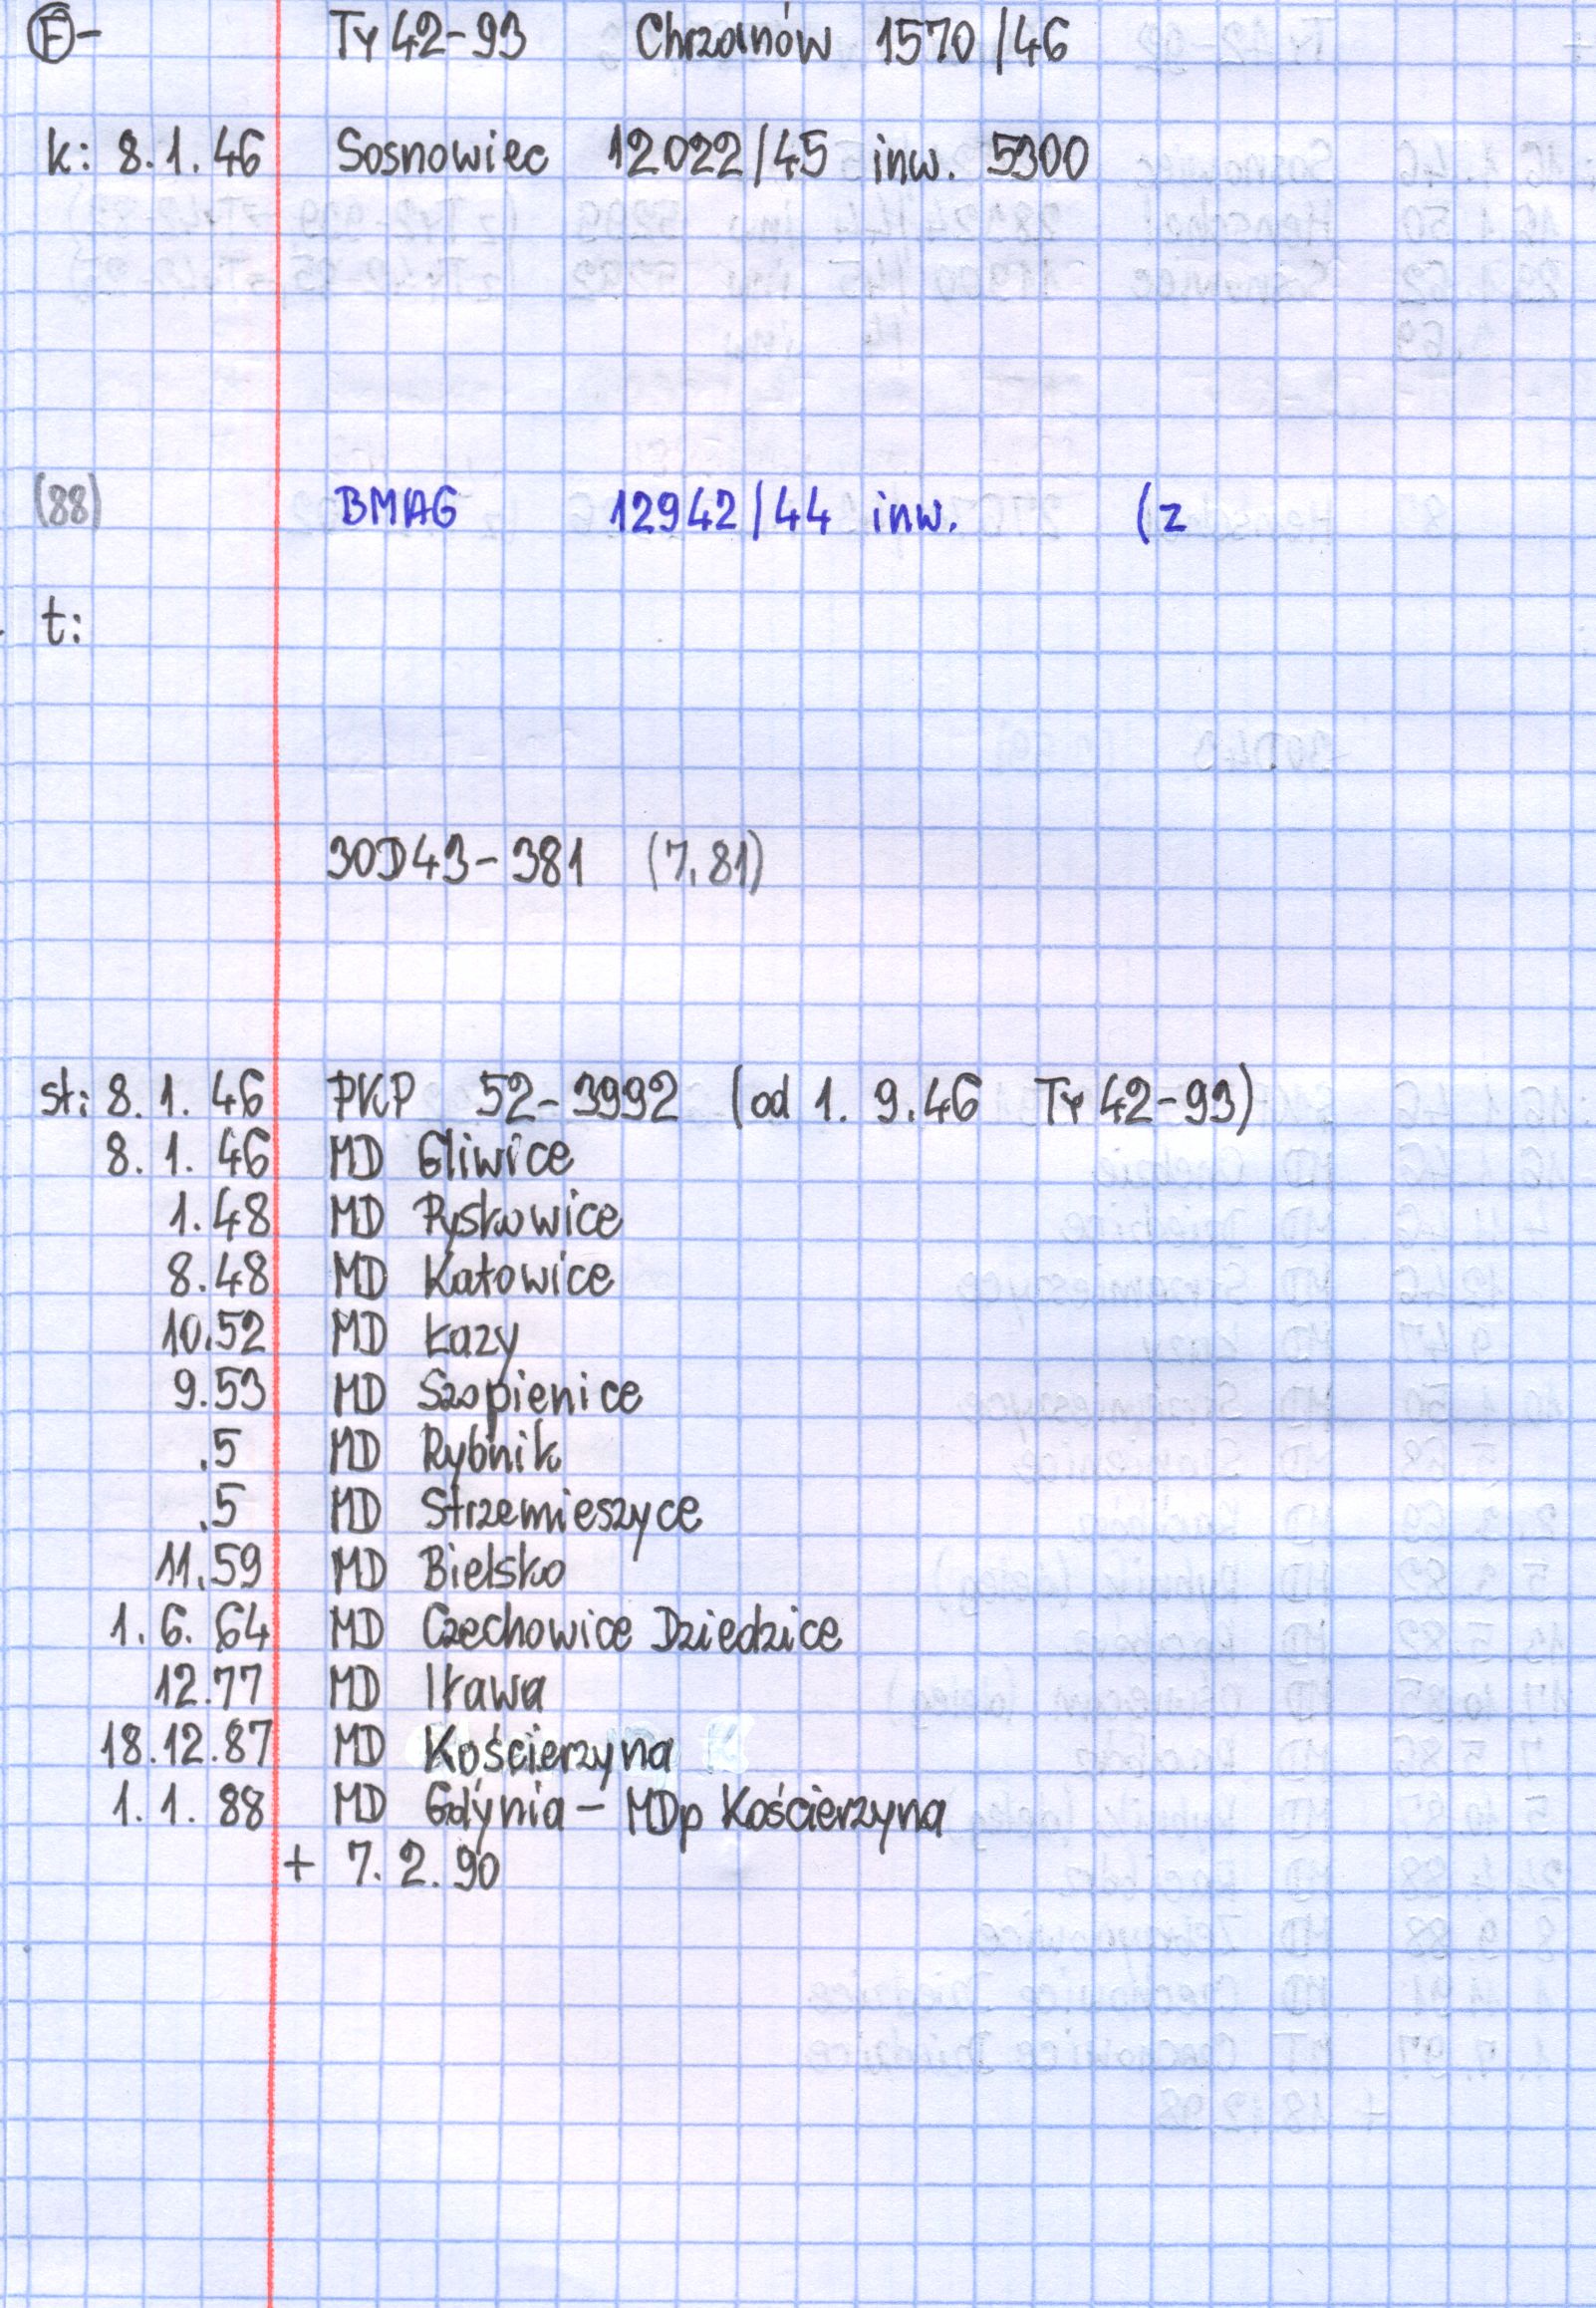 (F)- Ty 42-93 Chrzanów 1570/46
k: 8.1.46 Sosnowiec 12022/45 inw. 5300
(88) BMAG 12942/44 inw. (z
t:
30D43-381 (7.81)
st: 8.1.46 PKP 52-3992 (od 1.9.46 Ty 42-93)
8.1.46 MD Gliwice
1.48 MD Pyskowice
8.48 MD Katowice
10.52 MD Łazy
9.53 MD Szopienice
.5 MD Rybnik
.5 MD Strzemieszyce
11.59 MD Bielsko
1.6.64 MD Czechowice Dziedzice
12.77 MD Iława
18.12.87 MD Kościerzyna
1.1.88 MD Gdynia - MDp Kościerzyna
+ 7.2.90